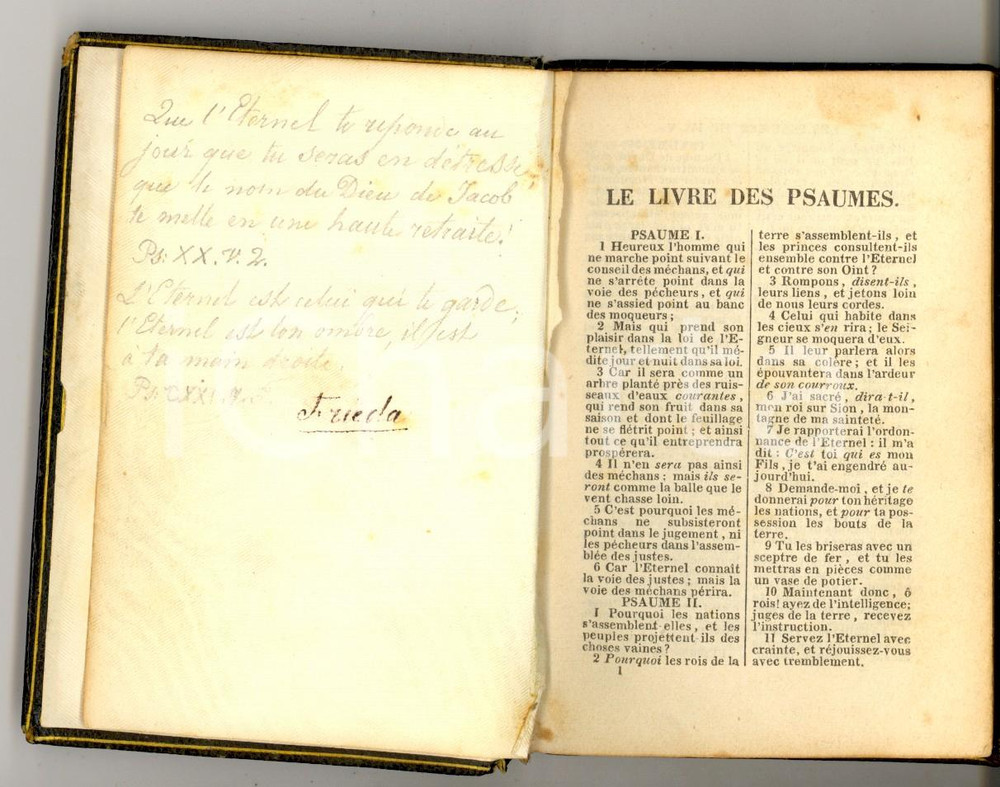 Que l'Eternel te réponde au
jour que tu seras en détresse,
que le nom du Dieu de Jacob
te mette en une haute retraite!
Ps. XX. V. 2.
L'Eternel est celui qui te garde,
l'Eternel est ton ombre, il est
à ta main droite.
Ps. CXXI. V. 5.
Frieda
LE LIVRE DES PSAUMES.
PSAUME I.
1 Heureux l'homme qui
ne marche point suivant le
conseil des méchans, et qui
ne s'arrête point dans la
voie des pécheurs, et qui
ne s'assied point au banc
des moqueurs ;
2 Mais qui prend son
plaisir dans la loi de l'E-
ternel, tellement qu'il mé-
dite jour et nuit dans sa loi.
3 Car il sera comme un
arbre planté près des ruis-
seaux d'eaux courantes,
qui rend son fruit dans sa
saison et dont le feuillage
ne se flétrit point ; et ainsi
tout ce qu'il entreprendra
prospérera.
4 Il n'en sera pas ainsi
des méchans ; mais ils se-
ront comme la balle que le
vent chasse loin.
5 C'est pourquoi les mé-
chans ne subsisteront
point dans le jugement, ni
les pécheurs dans l'assem-
blée des justes.
6 Car l'Eternel connaît
la voie des justes ; mais la
voie des méchans périra.
PSAUME II.
1 Pourquoi les nations
s'assemblent-elles, et les
peuples projettent-ils des
choses vaines ?
2 Pourquoi les rois de la
1
terre s'assemblent-ils, et
les princes consultent-ils
ensemble contre l'Eternel
et contre son Oint ?
3 Rompons, disent-ils,
leurs liens, et jetons loin
de nous leurs cordes.
4 Celui qui habite dans
les cieux s'en rira; le Sei-
gneur se moquera d'eux.
5 Il leur parlera alors
dans sa colère ; et il les
épouvantera dans l'ardeur
de son courroux.
6 J'ai sacré, dira-t-il,
mon roi sur Sion, la mon-
tagne de ma sainteté.
7 Je rapporterai l'ordon-
nance de l'Eternel : il m'a
dit : C'est toi qui es mon
Fils, je t'ai engendré au-
jourd'hui.
8 Demande-moi, et je te
donnerai pour ton héritage
les nations, et pour ta pos-
session les bouts de la
terre.
9 Tu les briseras avec un
sceptre de fer, et tu les
mettras en pièces comme
un vase de potier.
10 Maintenant donc, ô
rois! ayez de l'intelligence;
juges de la terre, recevez
l'instruction.
11 Servez l'Eternel avec
crainte, et réjouissez-vous
avec tremblement.